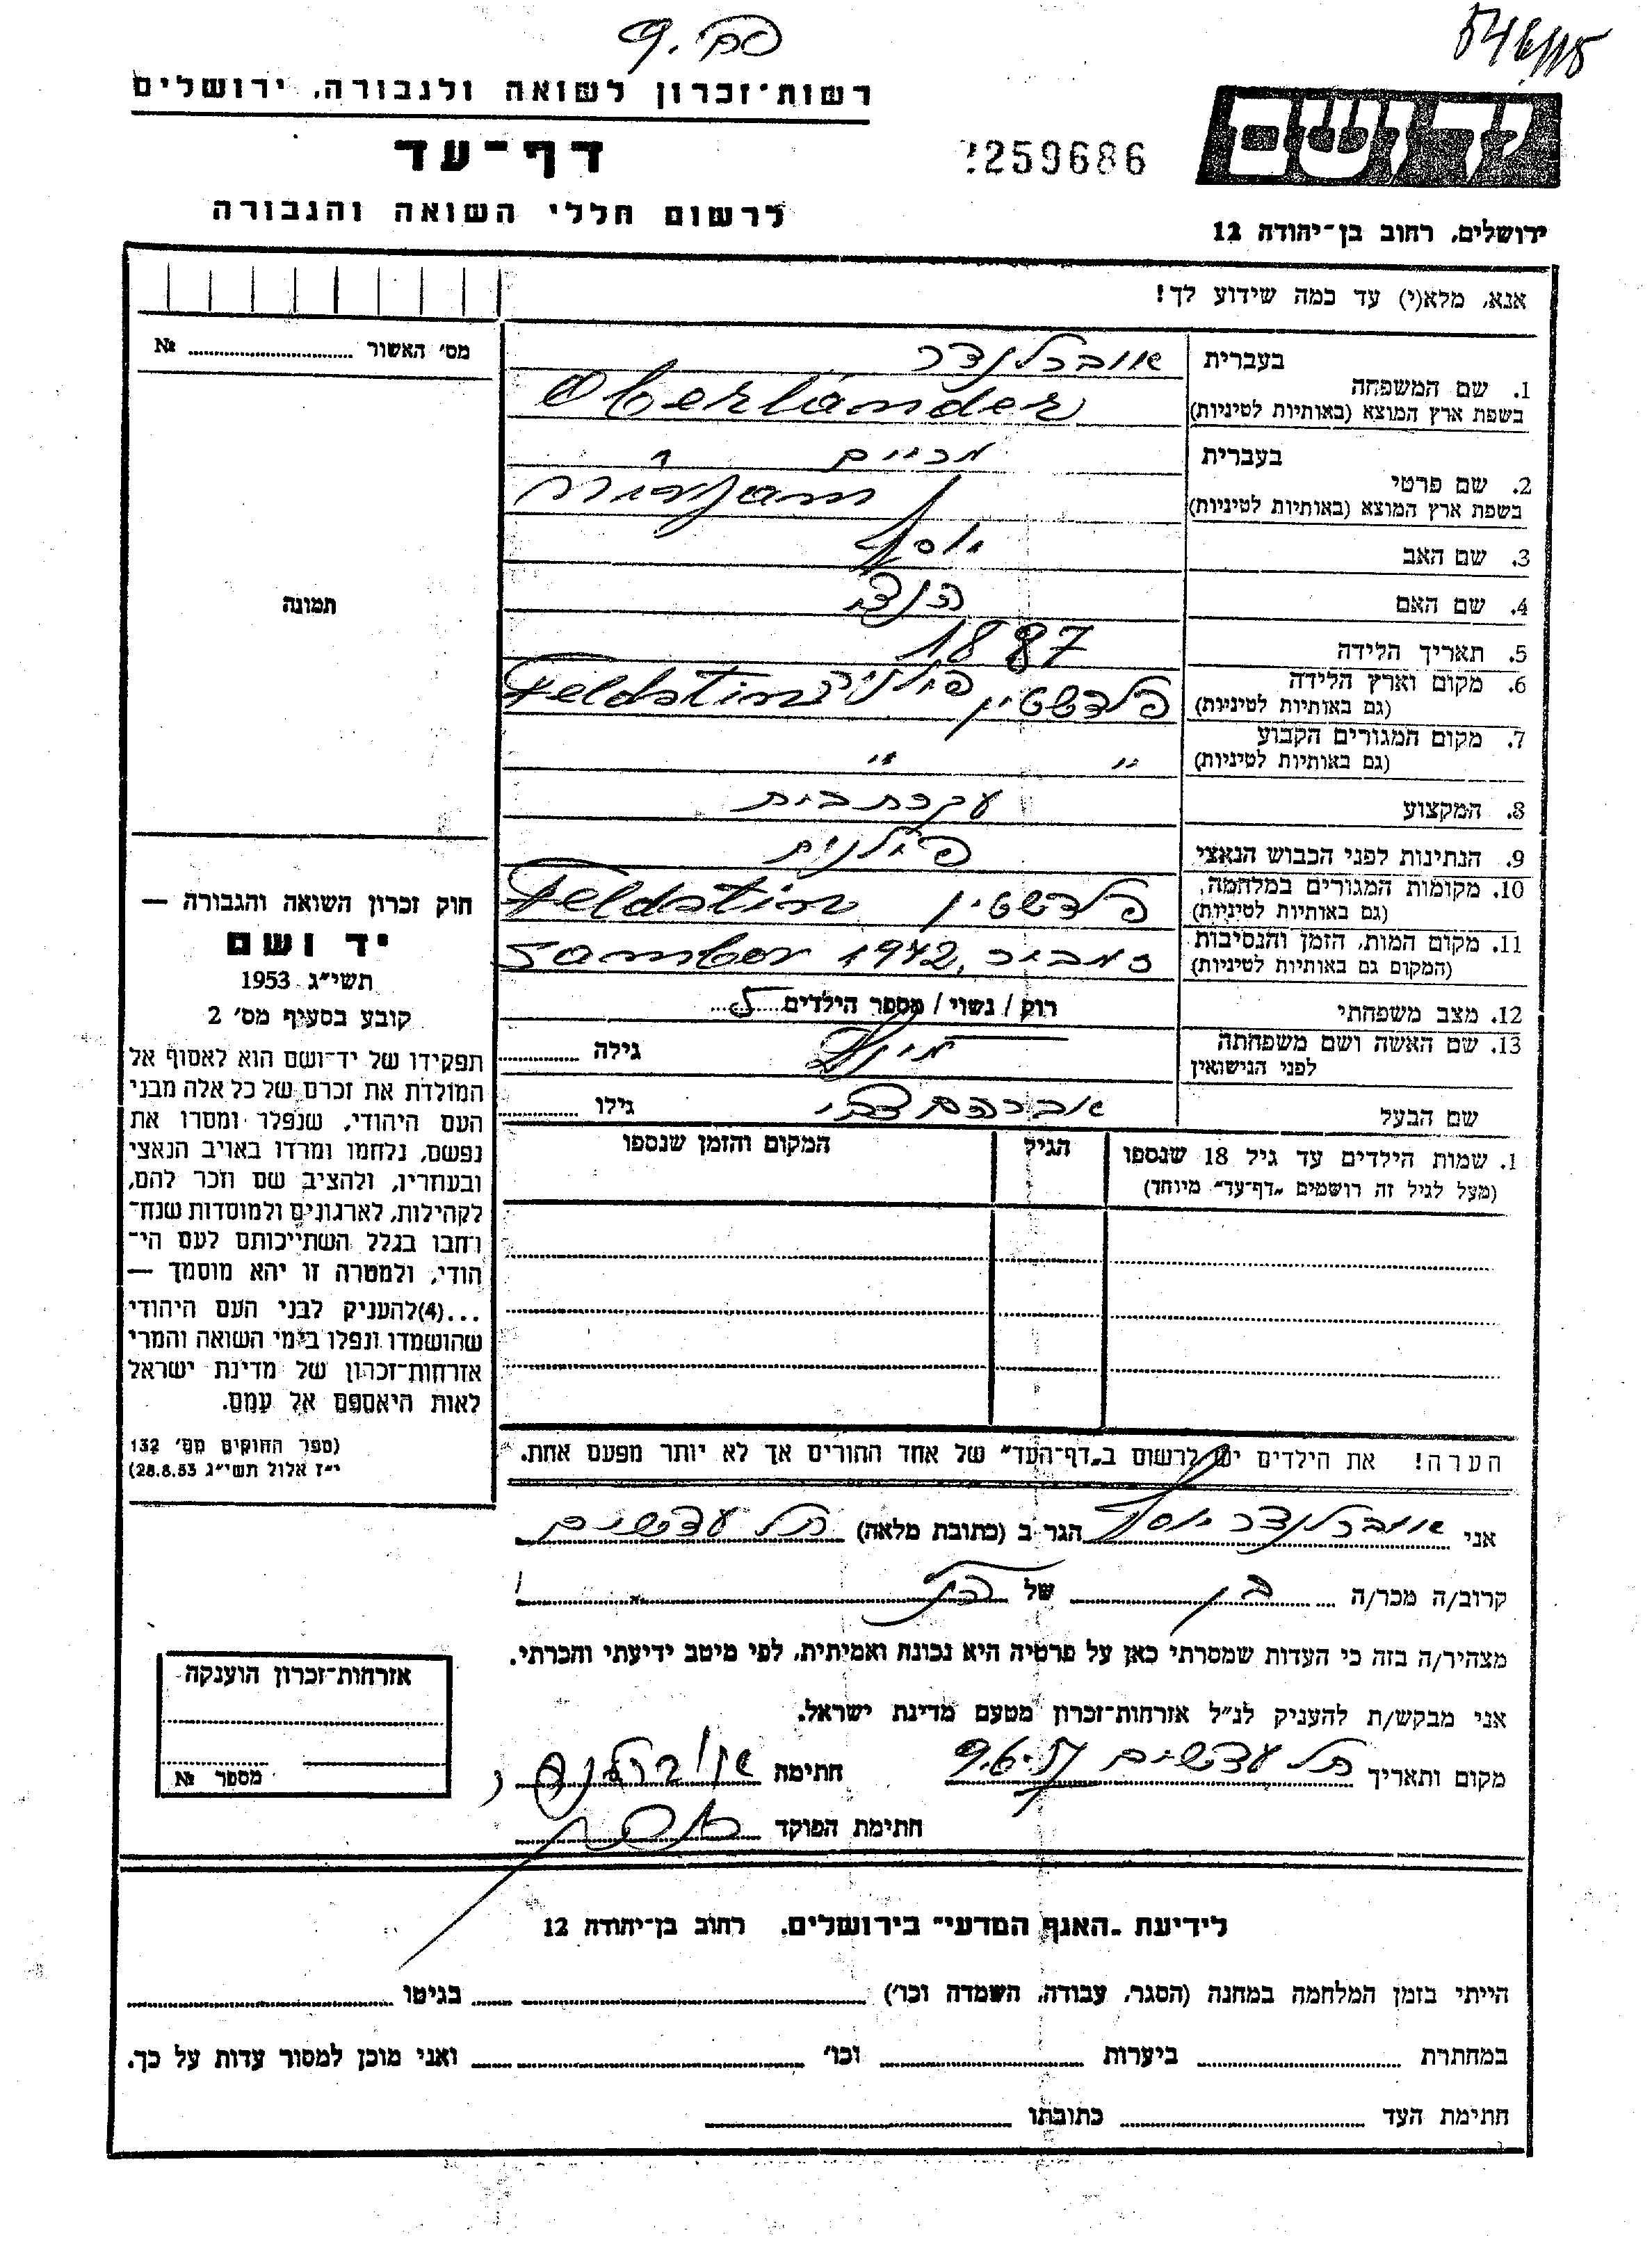 546/115
רשות־זכרון לשואה ולגבורה, ירושלים
דף־עד
259686
יד ושם
לרשום חללי השואה והגבורה
ירושלים, רחוב בן־יהודה 12
אנא, מלא(י) עד כמה שידוע לך!
מס׳ האשור № 
בעברית אוברלנדר
1. שם המשפחה
בשפת ארץ המוצא (באותיות לטיניות) Oberländer
בעברית מרים
2. שם פרטי
בשפת ארץ המוצא (באותיות לטיניות) Mirjam
3. שם האב יוסף
4. שם האם הנצי
תמונה
5. תאריך הלידה 1887
6. מקום וארץ הלידה
(גם באותיות לטיניות) פלדשטין פולניה Feldstin
7. מקום המגורים הקבוע
(גם באותיות לטיניות) " "
8. המקצוע עקרת בית
9. הנתינות לפני הכבוש הנאצי פולנית
10. מקומות המגורים במלחמה,
(גם באותיות לטיניות) פלדשטין Feldstin
11. מקום המות, הזמן והנסיבות
(המקום גם באותיות לטיניות) זמביר, 1942 Sambor
12. מצב משפחתי רוק / נשוי / מספר הילדים 5
13. שם האשה ושם משפחתה
לפני הנישואין גילה
שם הבעל אברהם צבי גילו
חוק זכרון השואה והגבורה —
יד ושם
תשי״ג 1953
קובע בסעיף מס׳ 2
תפקידו של יד־ושם הוא לאסוף אל
המולדת את זכרם של כל אלה מבני
העם היהודי, שנפלו ומסרו את
נפשם, נלחמו ומרדו באויב הנאצי
ובעוזריו, ולהציב שם וזכר להם,
לקהילות, לארגונים ולמוסדות שנח־
רחבו בגלל השתייכותם לעם הי־
הודי, ולמטרה זו יהא מוסמך —
...(4)להעניק לבני העם היהודי
שהושמדו ונפלו בימי השואה והמרי
אזרחות־זכרון של מדינת ישראל
לאות היאספם אל עמם.
(ספר החוקים מס׳ 132
י״ז אלול תשי״ג 28.8.53)
1. שמות הילדים עד גיל 18 שנספו
(מעל לגיל זה רושמים „דף־עד״ מיוחד)
הגיל
המקום והזמן שנספו
הערה! את הילדים יש לרשום ב„דף־העד״ של אחד ההורים אך לא יותר מפעם אחת.
אני אוברלנדר יוסף הגר ב (כתובת מלאה) תל עדשים
קרוב/ה מכר/ה בן של הנ״ל
מצהיר/ה בזה כי העדות שמסרתי כאן על פרטיה היא נכונה ואמיתית, לפי מיטב ידיעתי והכרתי.
אני מבקש/ת להעניק לנ״ל אזרחות־זכרון מטעם מדינת ישראל.
מקום ותאריך תל עדשים 9.6.57 חתימה
חתימת הפוקד
אזרחות־זכרון הוענקה
מספר №
לידיעת „האגף המדעי״ בירושלים, רחוב בן־יהודה 12
הייתי בזמן המלחמה במחנה (הסגר, עבודה, השמדה וכו׳) בגיטו
במחתרת ביערות וכו׳ ואני מוכן למסור עדות על כך.
חתימת העד כתובתו